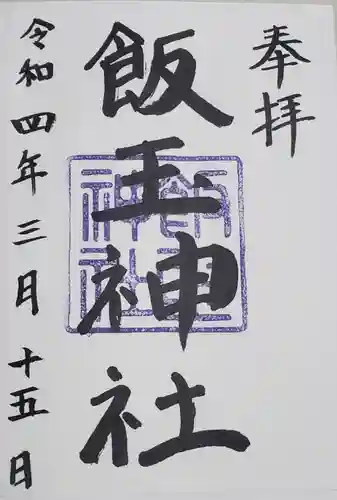 奉拝
飯玉神社
令和四年三月十五日